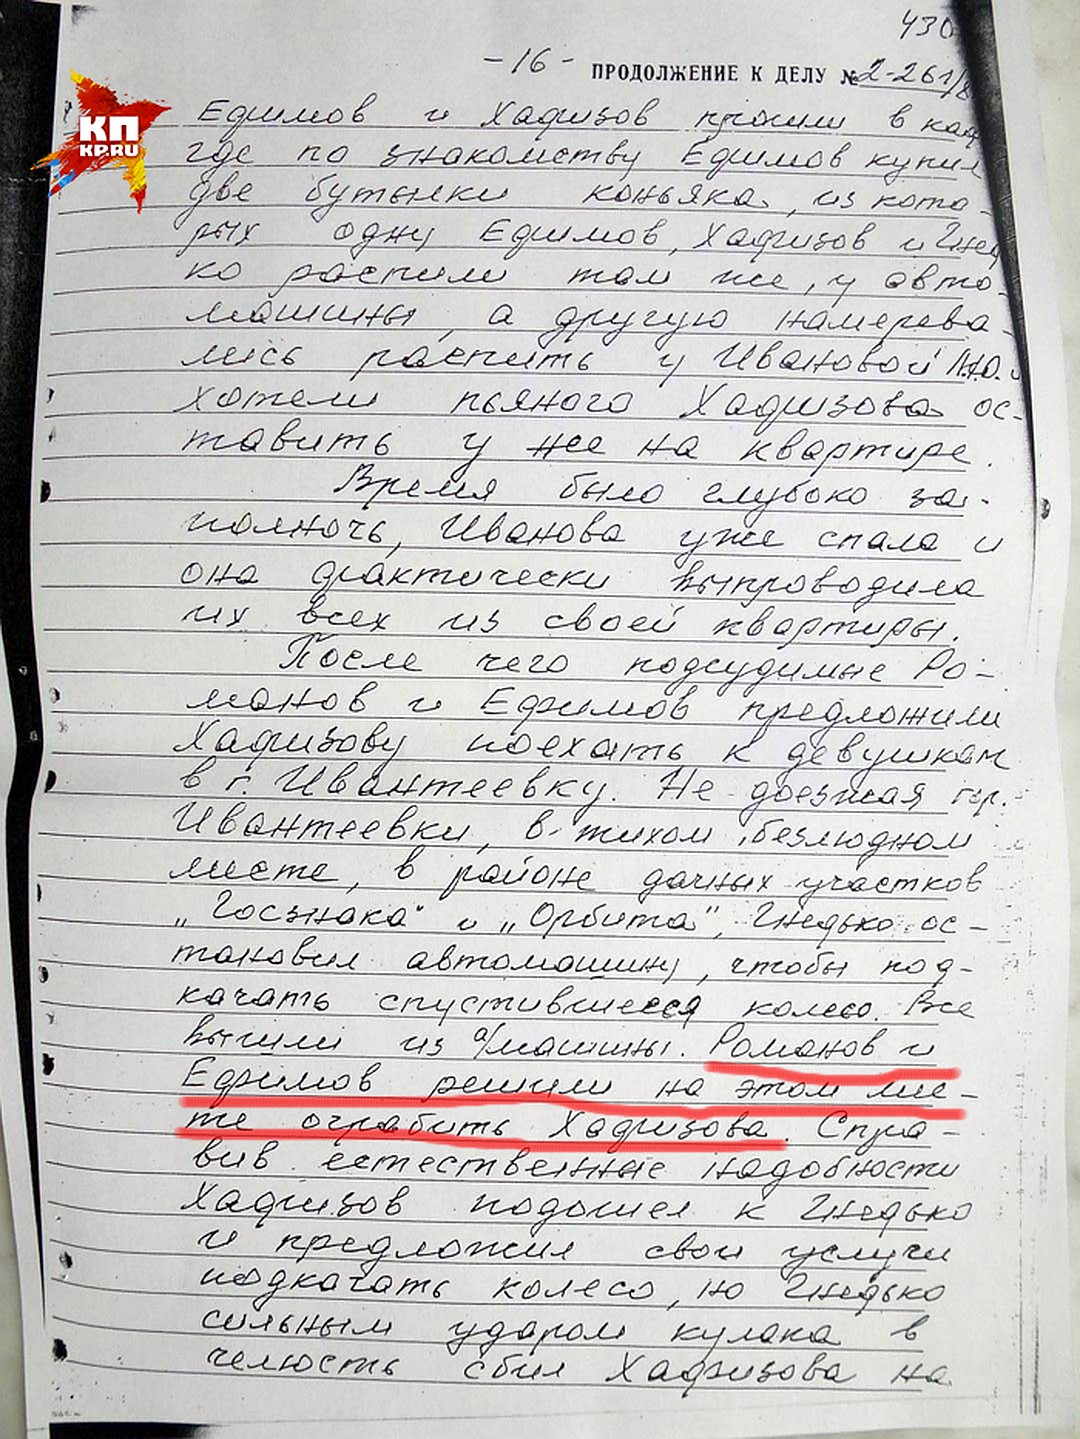 430
-16- ПРОДОЛЖЕНИЕ К ДЕЛУ № 2-261/8
КП
KP.RU
Ефимов и Хафизов прошли в каф
где по знакомству Ефимов купил
две бутылки коньяка, из кото-
рых одну Ефимов, Хафизов и Гнед
ко распили там же, у авто-
машины, а другую намерева-
лись распить у Ивановой Л.Ю. и
хотели пьяного Хафизова ос-
тавить у нее на квартире.
Время было глубоко за-
полночь, Иванова уже спала и
она фактически выпроводила
их всех из своей квартиры.
После чего подсудимые Ро-
манов и Ефимов предложили
Хафизову поехать к девушкам
в г. Ивантеевку. Не доезжая гор.
Ивантеевки, в тихом безлюдном
месте, в районе дачных участков
„Госзнака" и „Орбита", Гнедько ос-
тановил автомашину, чтобы под-
качать спустившееся колесо. Все
вышли из а/машины. Романов и
Ефимов решили на этом мес-
те ограбить Хафизова. Спра-
вив естественные надобности
Хафизов подошел к Гнедько
и предложил свои услуги
подкачать колесо, но Гнедько
сильным ударом кулака в
челюсть сбил Хафизова на